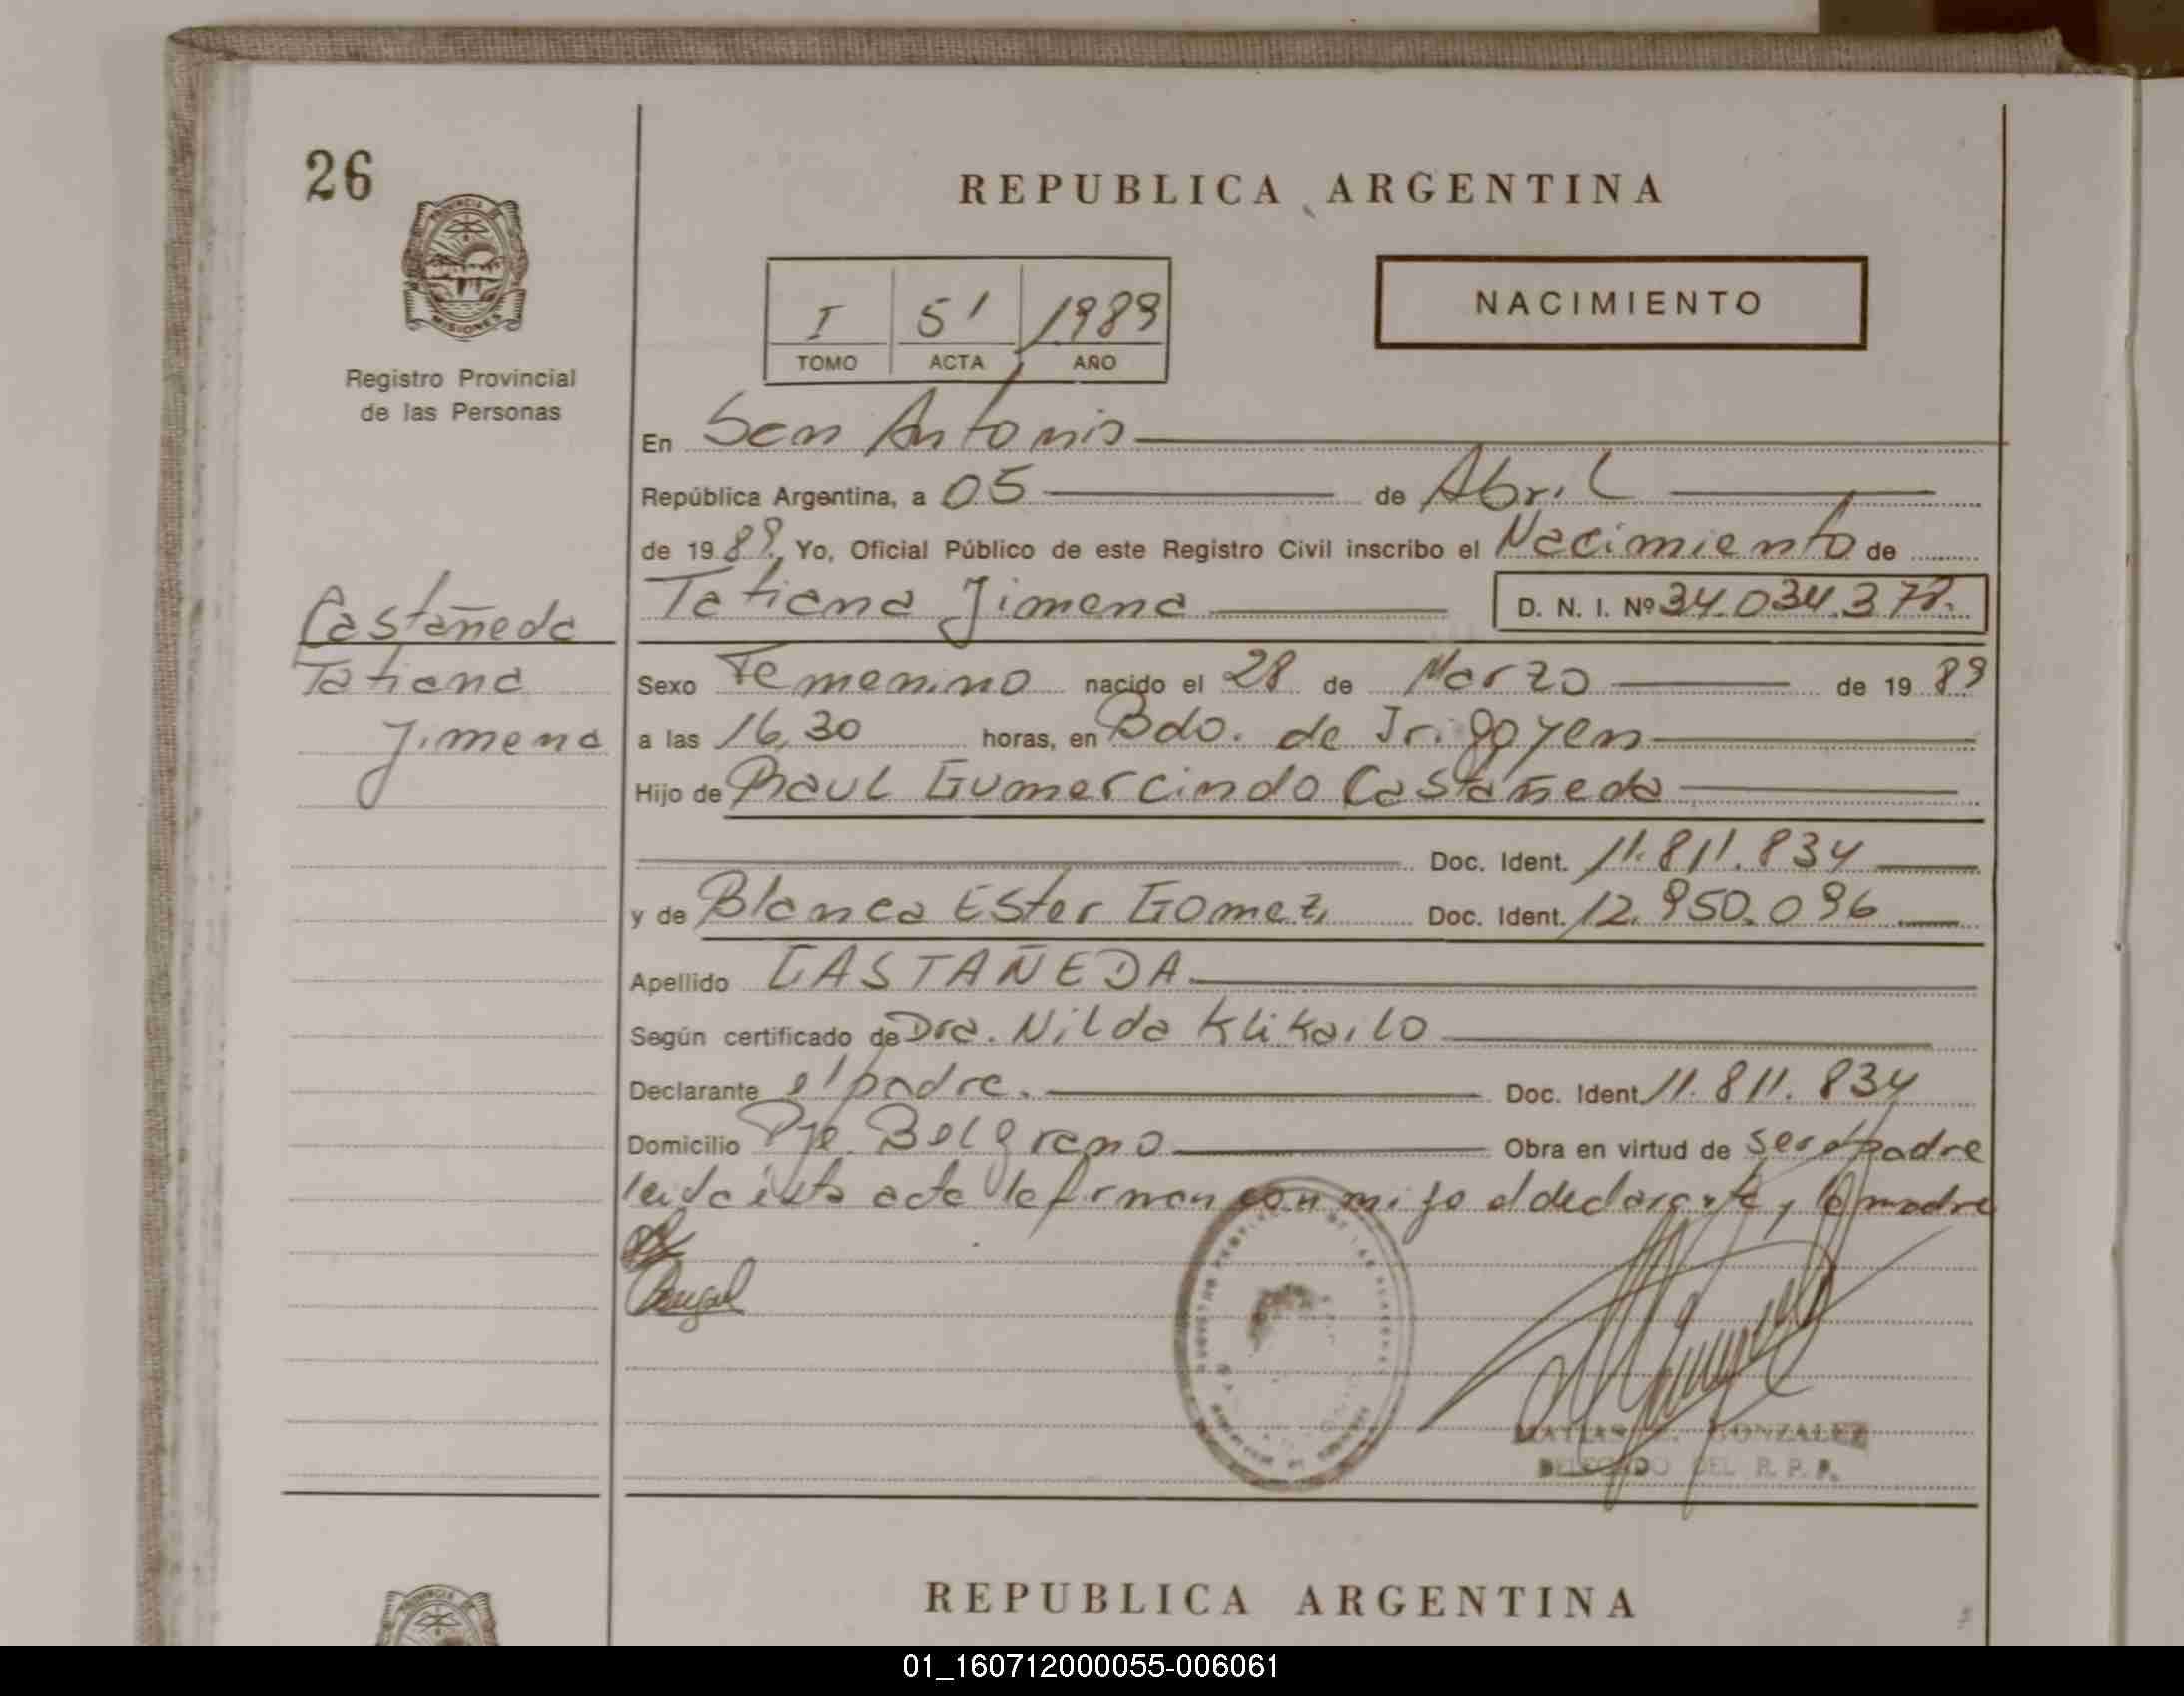 26
REPUBLICA ARGENTINA
PROVINCIA DE
MISIONES
Registro Provincial
de las Personas
I 51 1989
TOMO ACTA AÑO
NACIMIENTO
En San Antonio
República Argentina, a 05 de Abril
de 1989. Yo, Oficial Público de este Registro Civil inscribo el Nacimiento de
Tatiana Jimena D. N. I. Nº 34.034.378.
Castañeda
Tatiana
Jimena
Sexo Femenino nacido el 28 de Marzo de 1989
a las 16,30 horas, en Bdo. de Irigoyen
Hijo de Raul Gumercindo Castañeda
Doc. Ident. 11.811.834
y de Blanca Ester Gomez, Doc. Ident. 12.950.096
Apellido CASTAÑEDA
Según certificado de Dra. Nilda Klikailo
Declarante el padre. Doc. Ident. 11.811.834
Domicilio Pje. Belgrano Obra en virtud de ser el padre
leida esta acta la firman conmigo el declarante y la madre
GONZALEZ
DELEGADO DEL R. P. P.
REPUBLICA ARGENTINA
01_160712000055-006061